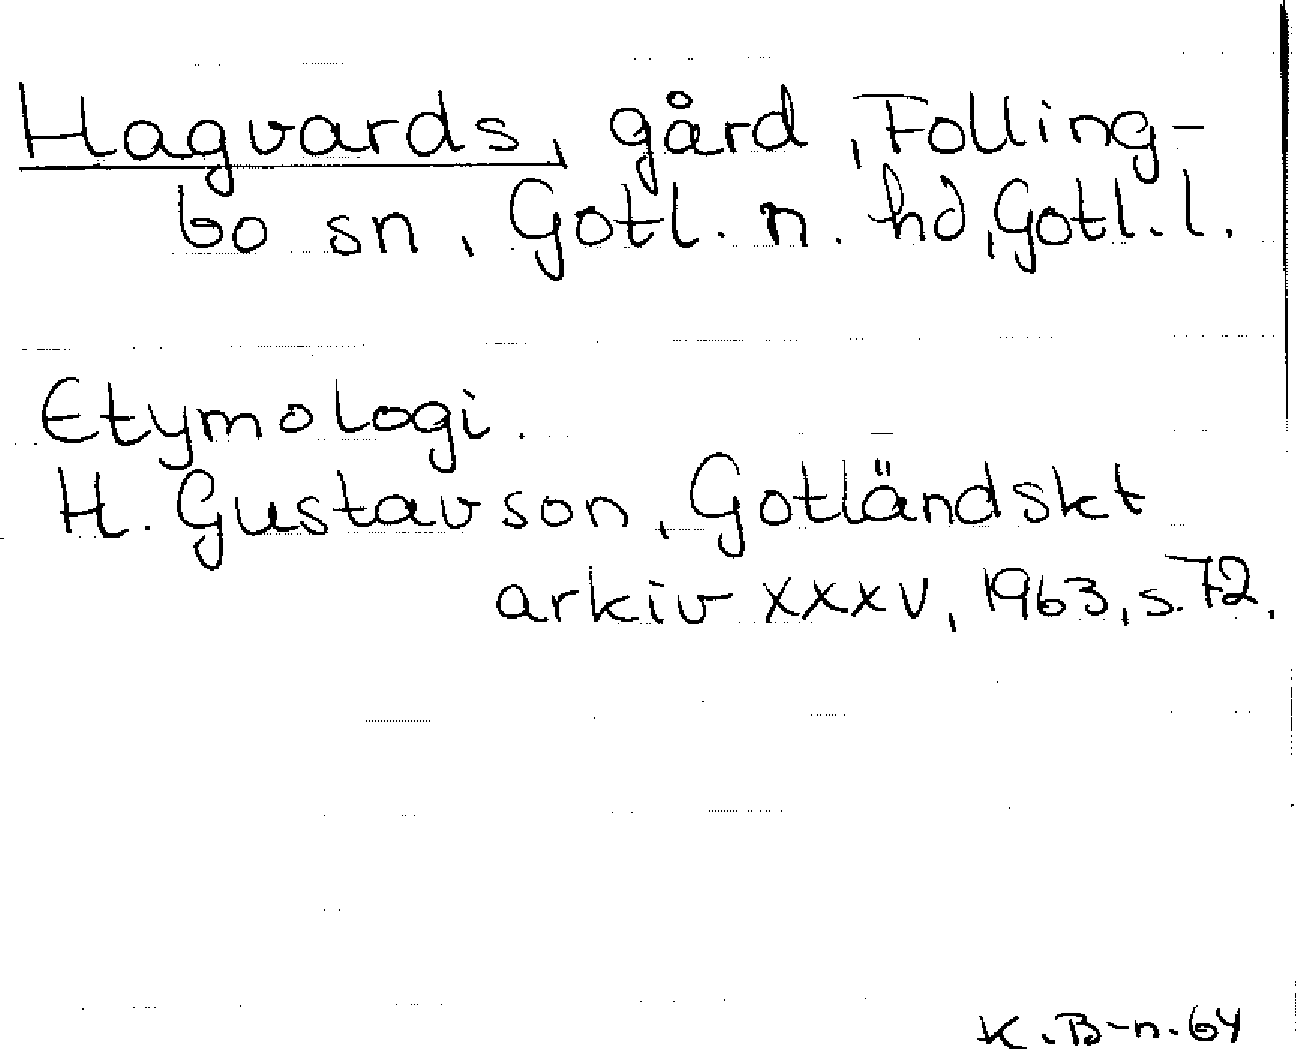 Hagvards, gård, Folling-
bo sn, Gotl. n. hd, Gotl. l.
Etymologi.
H. Gustavson, Gotländskt
arkiv XXXV, 1963, s. 72.
K. B-n. 64